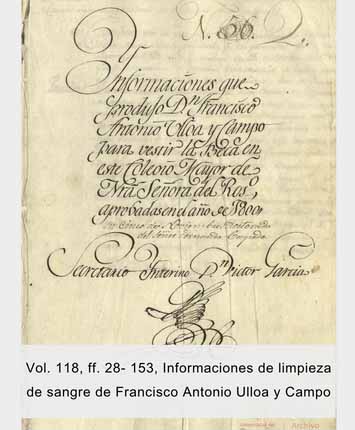 N. 56. 2.
Ynformaciones que
produso D.n Francisco
Antonio Ulloa y Campo
para vestir la Beca en
este Colegio Mayor de
Ntrã Señora del Ros.o
aprovadas en el año de 1800
Secretario Ynterino D.n Victor Garcia
Vol. 118, ff. 28- 153, Informaciones de limpieza
de sangre de Francisco Antonio Ulloa y Campo
Archivo